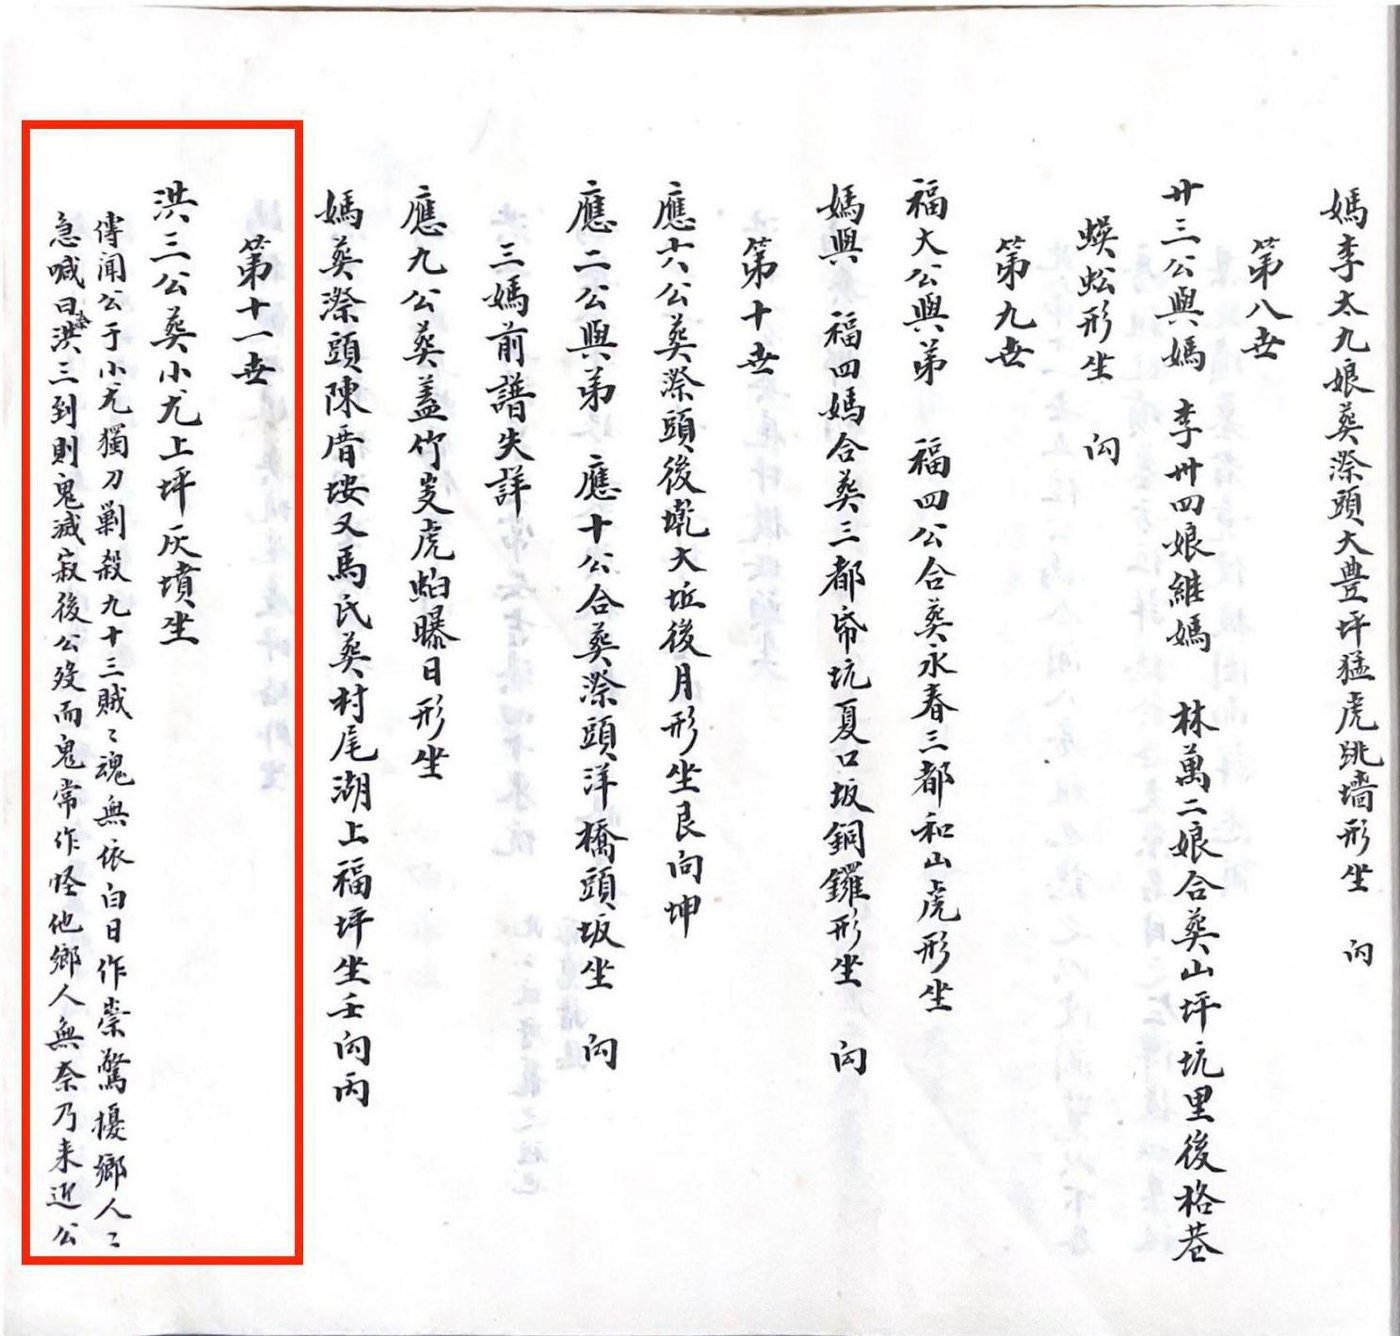 媽李太九娘葬漈頭大豊坪猛虎跳墻形坐　向
第八世
廾三公與媽　李卅四娘継媽　林萬二娘合葬山坪坑里後格巷
蜈蚣形坐　向
第九世
福大公與弟　福四公合葬永春三都和山虎形坐
媽與　福四媽合葬三都帋坑夏口坂銅鑼形坐　向
第十世
應六公葬漈頭後墘大坵後月形坐艮向坤
應二公與弟　應十公合葬漈頭洋橋頭坂坐　向
三媽前譜失詳
應九公葬蓋竹岌虎蛤曝日形坐
媽葬漈頭陳厝垵又馬氏葬村尾湖上福坪坐壬向丙
第十一世
洪三公葬小尤上坪灰墳坐
傳聞公于小尤獨刀剿殺九十三賊〻魂無依白日作祟驚擾鄉人〻
急喊曰洪三到則鬼滅寂後公歿而鬼常作怪他鄉人無奈乃来近公